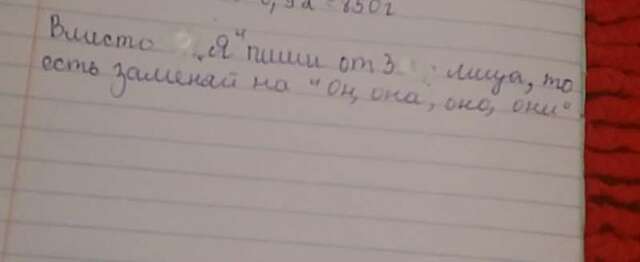 = 850г
Вместо „Я“ пиши от 3 лица, то
есть заменяй на “он, она, оно, они“